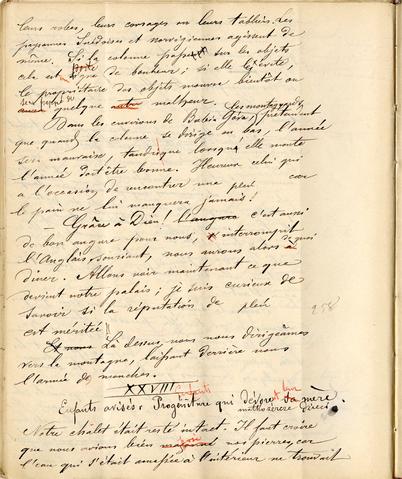 leurs robes, leurs corsages ou leurs tabliers. Les
paysannes Suédoises et norvégiennes agissent de
même. Si la colonne passe sur les objets
cela est signe de bonheur; si elle l'évite,
le propriétaire des objets mourra bientôt ou
quelque malheur.
Dans les environs de Babia Góra, prétendent
que quand la colonne se dirige en bas, l'année
sera mauvaise, tandisque lorsqu'elle monte
l'année doit être bonne. Heureux celui qui
a l'occasion de rencontrer une pleń car
le pain ne lui manquera jamais!
Grâce à Dieu! c'est aussi
de bon augure pour nous, interrompit
l'Anglais, souriant, nous aurons alors de quoi
diner. Allons voir maintenant ce que
devint notre palais; je suis curieux de
savoir si la réputation de pleń 258
est méritée!
Là dessus, nous nous dirigeâmes
vers la montagne, laissant derrière nous
l'armée de mouches.
XXVIII
Enfants avisés. Progéniture qui dévore sa mère.
Notre châlet était resté intact. Il faut croire
que nous avions bien nos pierres, car
l'eau qui s'était amassée à l'intérieur ne trouvait